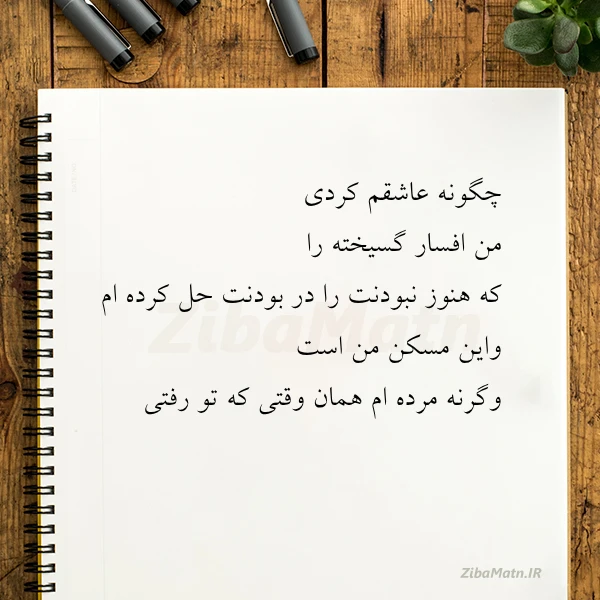 چگونه عاشقم کردی
من افسار گسیخته را
که هنوز نبودنت را در بودنت حل کرده ام
واین مسکن من است
وگرنه مرده ام همان وقتی که تو رفتی
ZibaMatn
ZibaMatn.IR